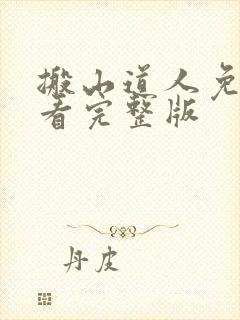 搬山道人免
看完整版
丹皮